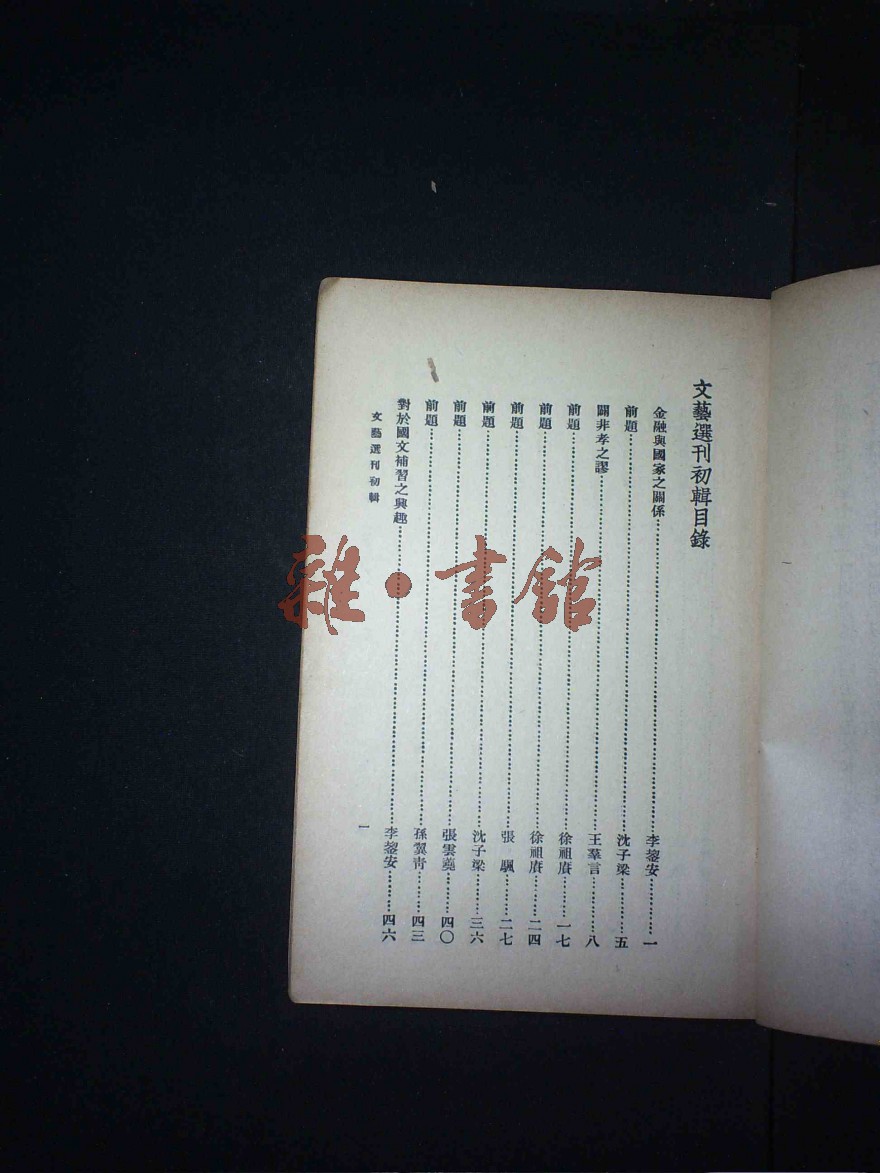 文藝選刊初輯目錄
金融與國家之關係……李鋆安……一
前題……沈子梁……五
闢非孝之謬……王羣言……八
前題……徐祖賡……一七
前題……徐祖賡……二四
前題……張 颿……二七
前題……沈子梁……三六
前題……張雲薨……四〇
前題……孫翼靑……四三
對於國文補習之興趣……李鋆安……四六
文藝選刊初輯
一
雜·書館